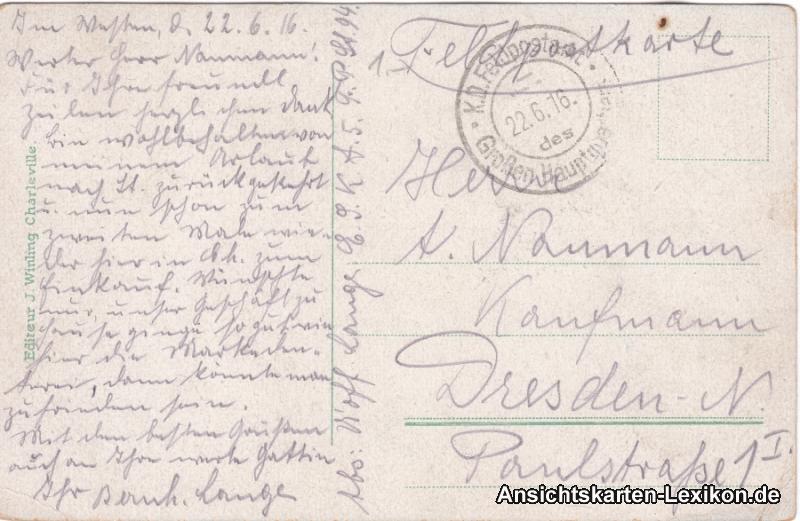 Im Westen, d. 22.6.16.
Werter Herr Naumann!
Für Ihre freundl.
Zeilen herzlichen Dank
bin wohlbehalten von
meinem Urlaub
nach St. zurückgekehrt
u. nun schon zum
zweiten Male wie-
der hier in Ch. zum
Einkauf. Wünschte
nur, unser Geschäft zu
Hause ginge so gut wie
hier die Marketen-
terei, dann könnte man
zufrieden sein.
Mit den besten Grüßen
auch an Ihre werte Gattin
Ihr Bernh. Lange
Abs: Lange
Editeur J. Winling Charleville.
Feldpostkarte
K.D. Feldpostexp.
22.6.16.
des
Großen Hauptquartiers
Herrn
A. Naumann
Kaufmann
Dresden-N.
Paulstraße 1 I.
Ansichtskarten-Lexikon.de